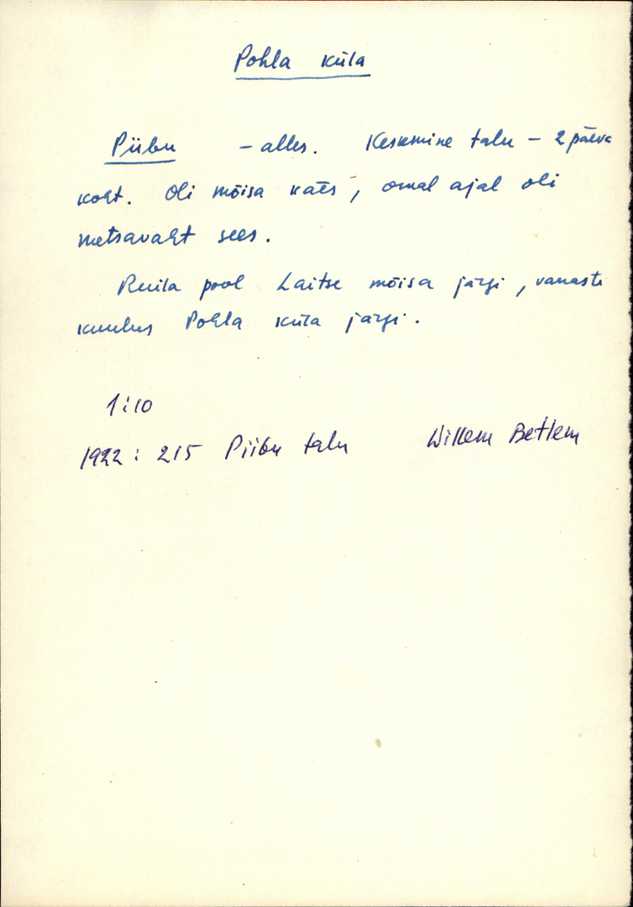 Pohla küla
Piibu - alles. Keskmine talu - 2 päeva
koht. Oli mõisa käes, omal ajal oli
metsavaht sees.
Ruila pool Laitse mõisa järgi, vanasti
kuulus Pohla küla järgi.
1:10
1922: 215 Piibu talu Willem Betlem